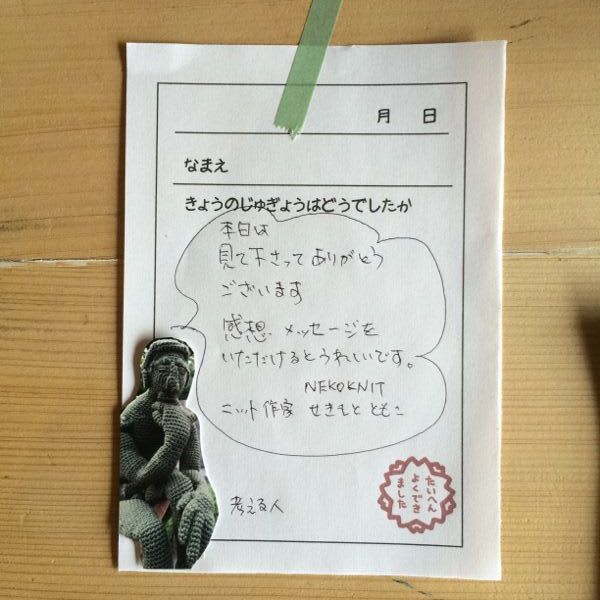 月 日
なまえ
きょうのじゅぎょうはどうでしたか
本日は
見て下さってありがとう
ございます
感想 メッセージを
いただけるとうれしいです。
NEKOKNIT
ニット作家 せきもと ともこ
考える人
たいへん
よくでき
ました